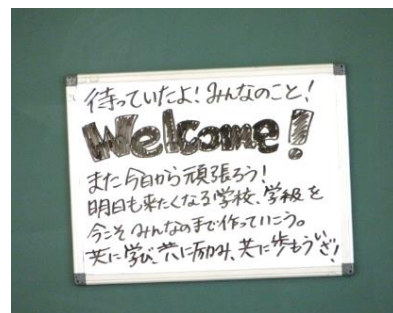 待っていたよ！みんなのこと！
Welcome!
また今日から頑張ろう！
明日も来たくなる学校、学級を
今こそみんなの手で作っていこう。
共に学び、共に励み、共に歩もうぃざ！